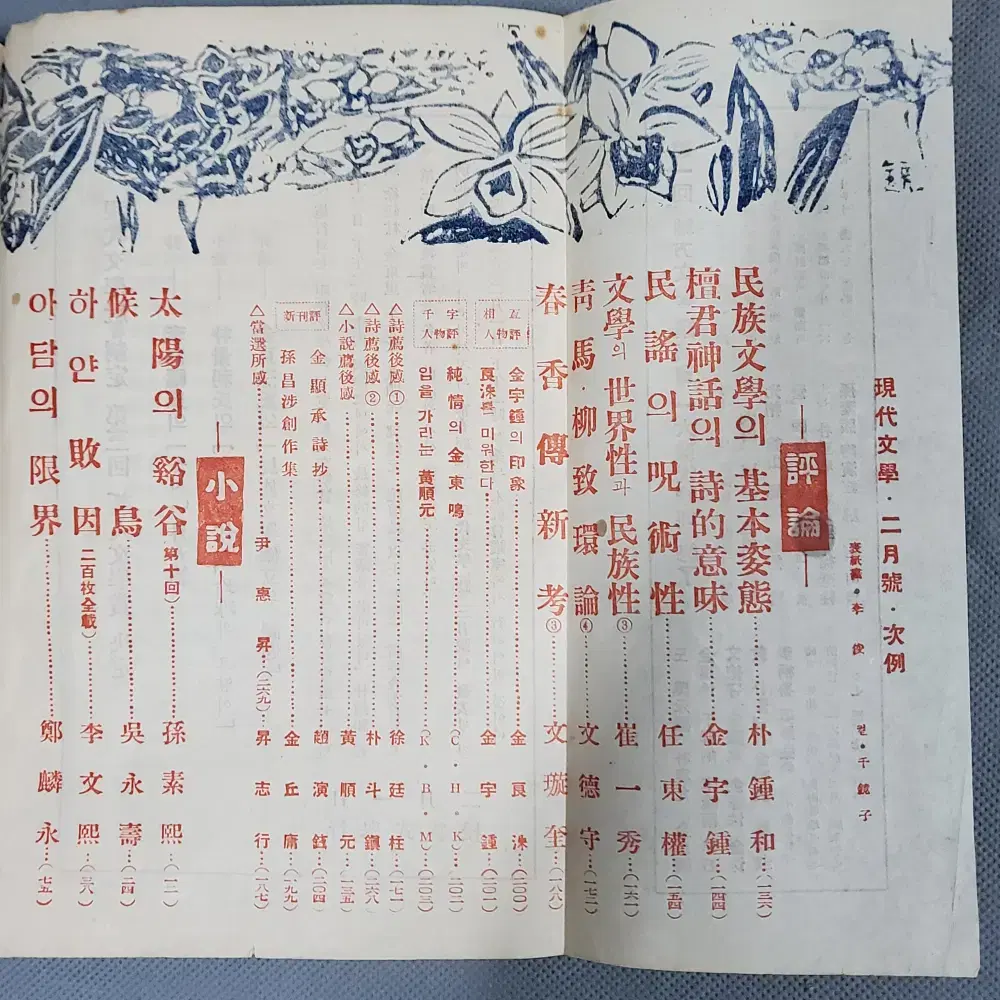 現代文學·二月號·次例
表紙畵·李俊
컽·千鏡子
評論
民族文學의 基本姿態……朴鍾和…(一三六)
檀君神話의 詩的意味……金宇鍾…(一四四)
民謠의 呪術性……任東權…(一五四)
文學의 世界性과 民族性③……崔一秀…(一六一)
靑馬·柳致環論④……文德守…(一七三)
春香傳新考③……文璇奎…(一八八)
相互人物評
金宇鍾의 印象……金良洙…(二〇〇)
良洙를 미워한다……金宇鍾…(二〇一)
千字人物評
純情의 金東鳴……(C·H·K)…(二〇二)
입을 가리는 黃順元……(K·B·M)…(二〇三)
△詩薦後感①……徐廷柱…(一七一)
△詩薦後感②……朴斗鎭…(二六八)
△小說薦後感……黃順元…(一三五)
新刊評
金顯承詩抄……趙演鉉…(二〇四)
孫昌涉創作集……金丘庸…(一九九)
△當選所感……尹惠昇…(二六九)…昇志行…(一八七)
小說
太陽의 谿谷(第十回)……孫素熙…(一二)
候鳥……吳永壽…(二四)
하얀 敗因(二百枚全載)……李文熙…(三八)
아담의 限界……鄭麟永…(七五)